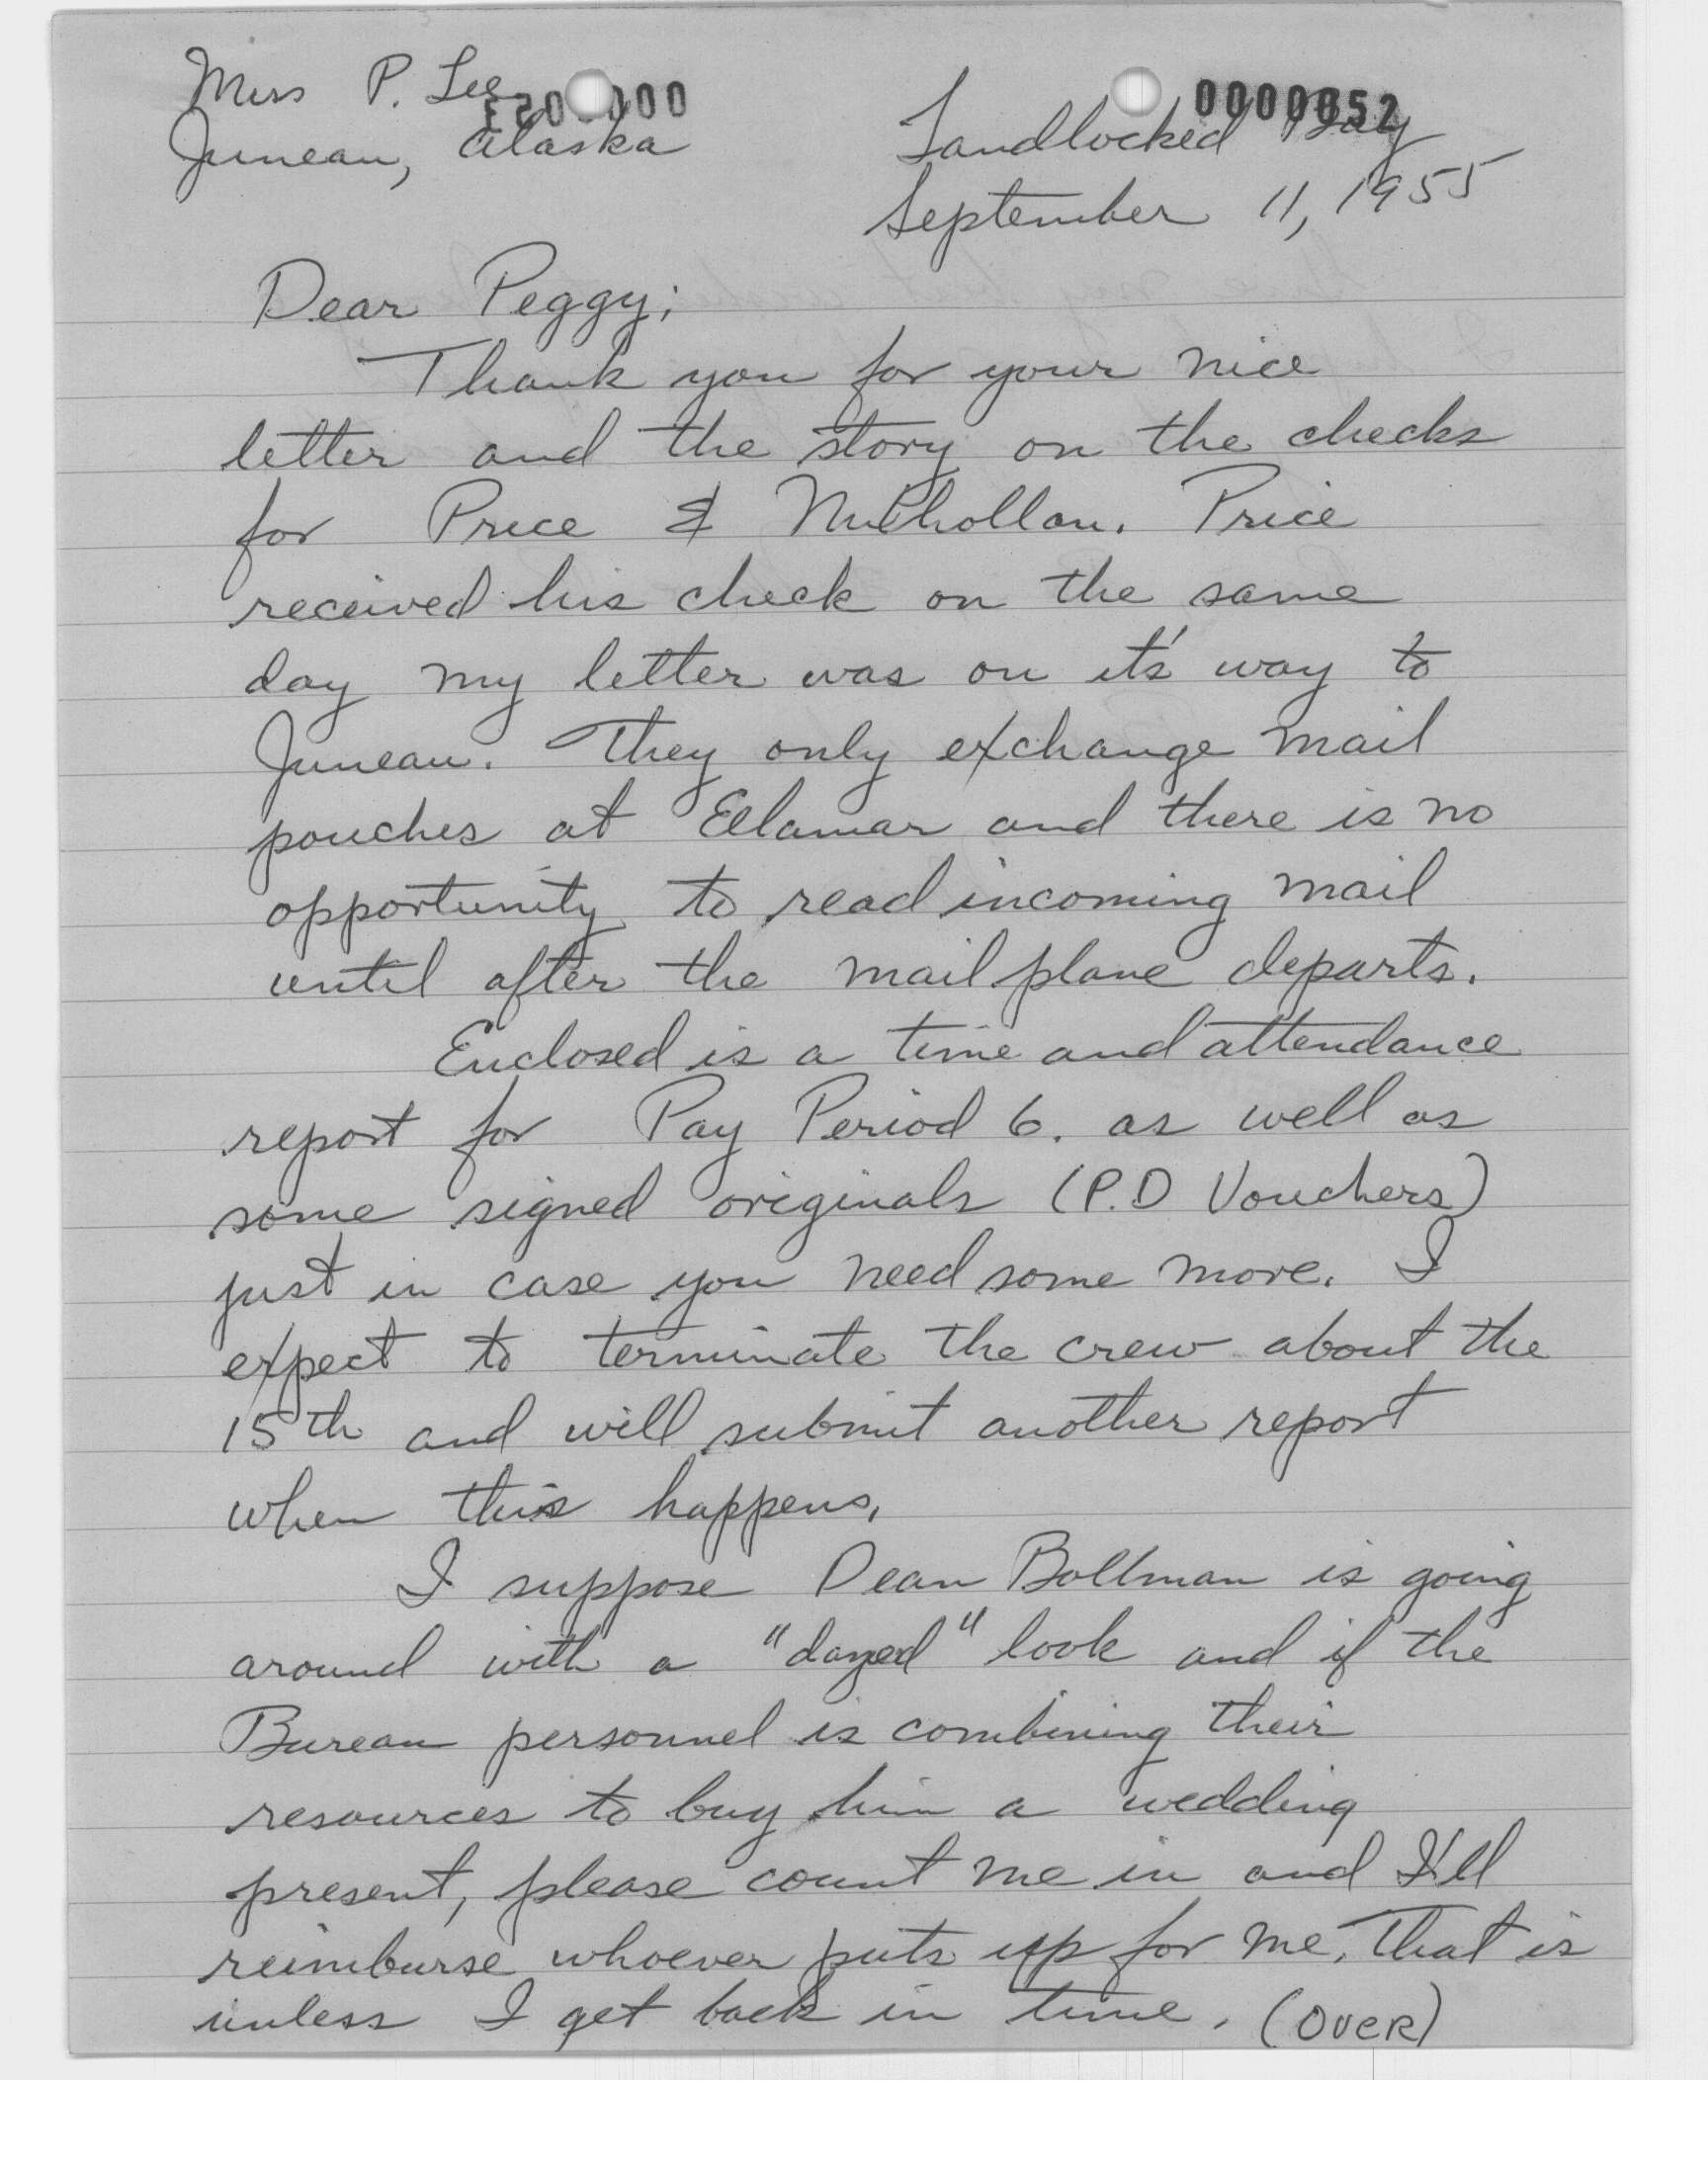 Miss P. Lee
Juneau, Alaska
0000052
Landlocked Bay
September 11, 1955
Dear Peggy;
Thank you for your nice
letter and the story on the checks
for Price & Mulhollan. Price
received his check on the same
day my letter was on it's way to
Juneau. They only exchange mail
pouches at Ellamar and there is no
opportunity to read incoming mail
until after the mail plane departs.
Enclosed is a time and attendance
report for Pay Period 6. as well as
some signed originals (P.D Vouchers)
just in case you need some more. I
expect to terminate the crew about the
15th and will submit another report
when this happens.
I suppose Dean Bollman is going
around with a "dazed" look and if the
Bureau personnel is combining their
resources to buy him a wedding
present, please count me in and I'll
reimburse whoever puts up for me. That is
unless I get back in time. (OVER)